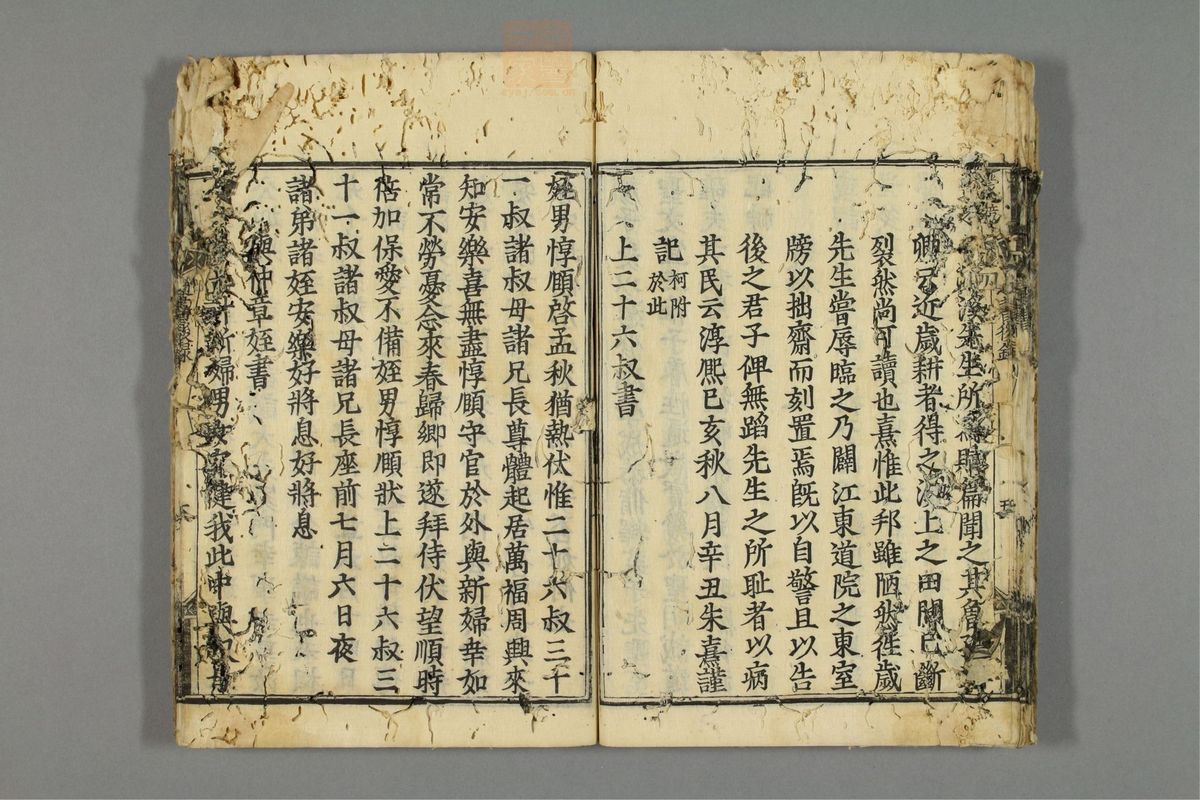 濂溪先生所
聞之其曾孫
卿云近歲耕者得之溪上之田間已斷
裂然尚可讀也熹惟此邦雖陋然徃歲
先生嘗辱臨之乃闢江東道院之東室
牓以拙齋而刻置焉旣以自警且以告
後之君子俾無蹈先生之所耻者以病
其民云淳熈己亥秋八月辛丑朱熹謹
記 柯附於此
上二十六叔書
姪男惇頤啓孟秋猶熱伏惟二十六叔三十
一叔諸叔母諸兄長尊體起居萬福周興來
知安樂喜無盡惇頤守官於外與新婦幸如
常不勞憂念來春歸鄉即遂拜侍伏望順時
倍加保愛不備姪男惇頤狀上二十六叔三
十一叔諸叔母諸兄長座前七月六日夜
諸弟諸姪安樂好將息好將息
與仲章姪書
新婦男女安健我此中與